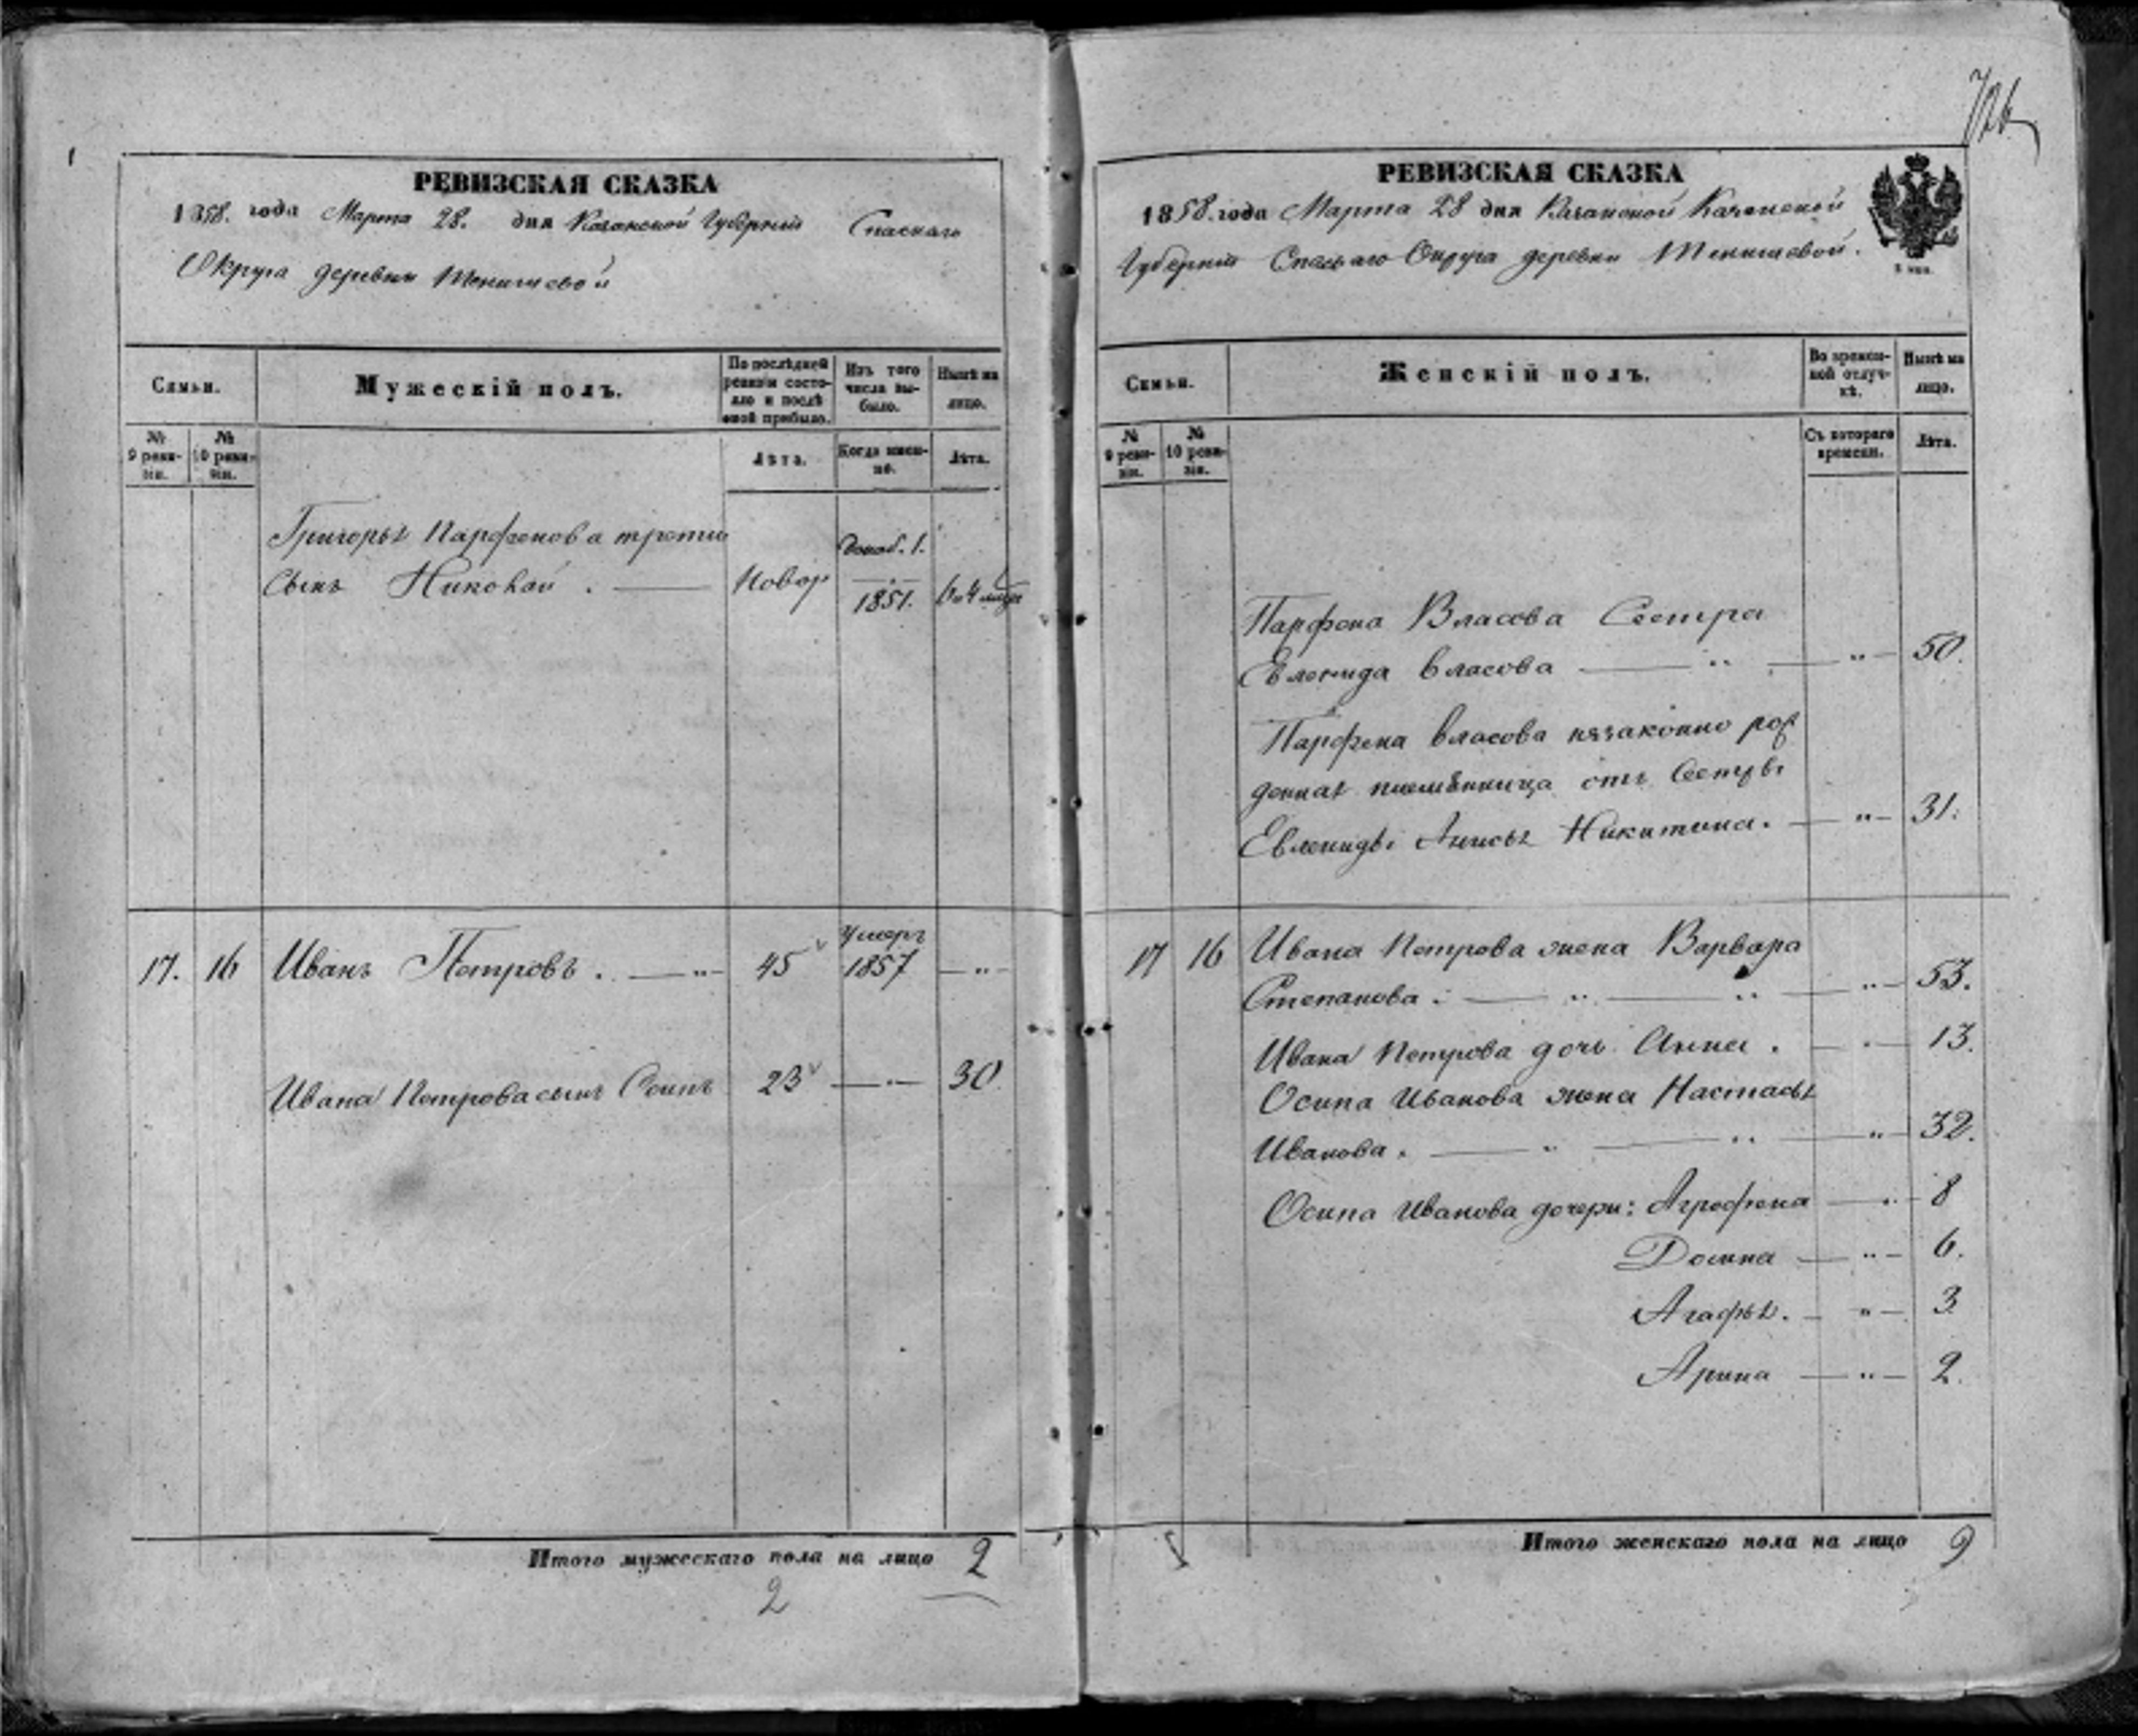 РЕВИЗСКАЯ СКАЗКА
1858. года Марта 28. дня Казанской Губерніи Спаскаго
Округа деревни Тенишевой
Семьи.
Мужескій полъ.
По послѣдней ревизіи состояло и послѣ оной прибыло.
Изъ того числа выбыло.
Нынѣ на лицо.
№ 9 ревизіи.
№ 10 ревизіи.
Лѣта.
Когда именно.
Лѣта.
Григорья Парфенова
сынъ Николай . Новор 1851.
17. 16 Иванъ Петровъ . — „ 45 Умеръ 1857 — „ —
Ивана Петрова сынъ Осипъ 23 — „ — 30
Итого мужескаго пола на лицо 2
2
РЕВИЗСКАЯ СКАЗКА
1858. года Марта 28 дня Казанской Казанской
Губерніи Спаскаго Округа деревни Тенишевой.
Семьи.
Женскій полъ.
Во временной отлучкѣ.
Нынѣ на лицо.
№ 9 ревизіи.
№ 10 ревизіи.
Съ котораго времени.
Лѣта.
Парфена Власова Сестра
Евленида Власова — „ — „ — 50.
Парфена Власова незаконно рож
денная племѣнница отъ Сестры
Евлениды Никитина. — „ — 31.
17 16 Ивана Петрова жена Варвара
Степанова . — „ — „ — „ — 53.
Ивана Петрова дочь Анна . — „ — 13.
Осипа Иванова жена Настасья
Иванова . — „ — „ — „ — 32.
Осипа Иванова дочери: Агрофена — „ — 8
Домна — „ — 6.
Агафья. — „ — 3
Арина — „ — 2.
Итого женскаго пола на лицо 9